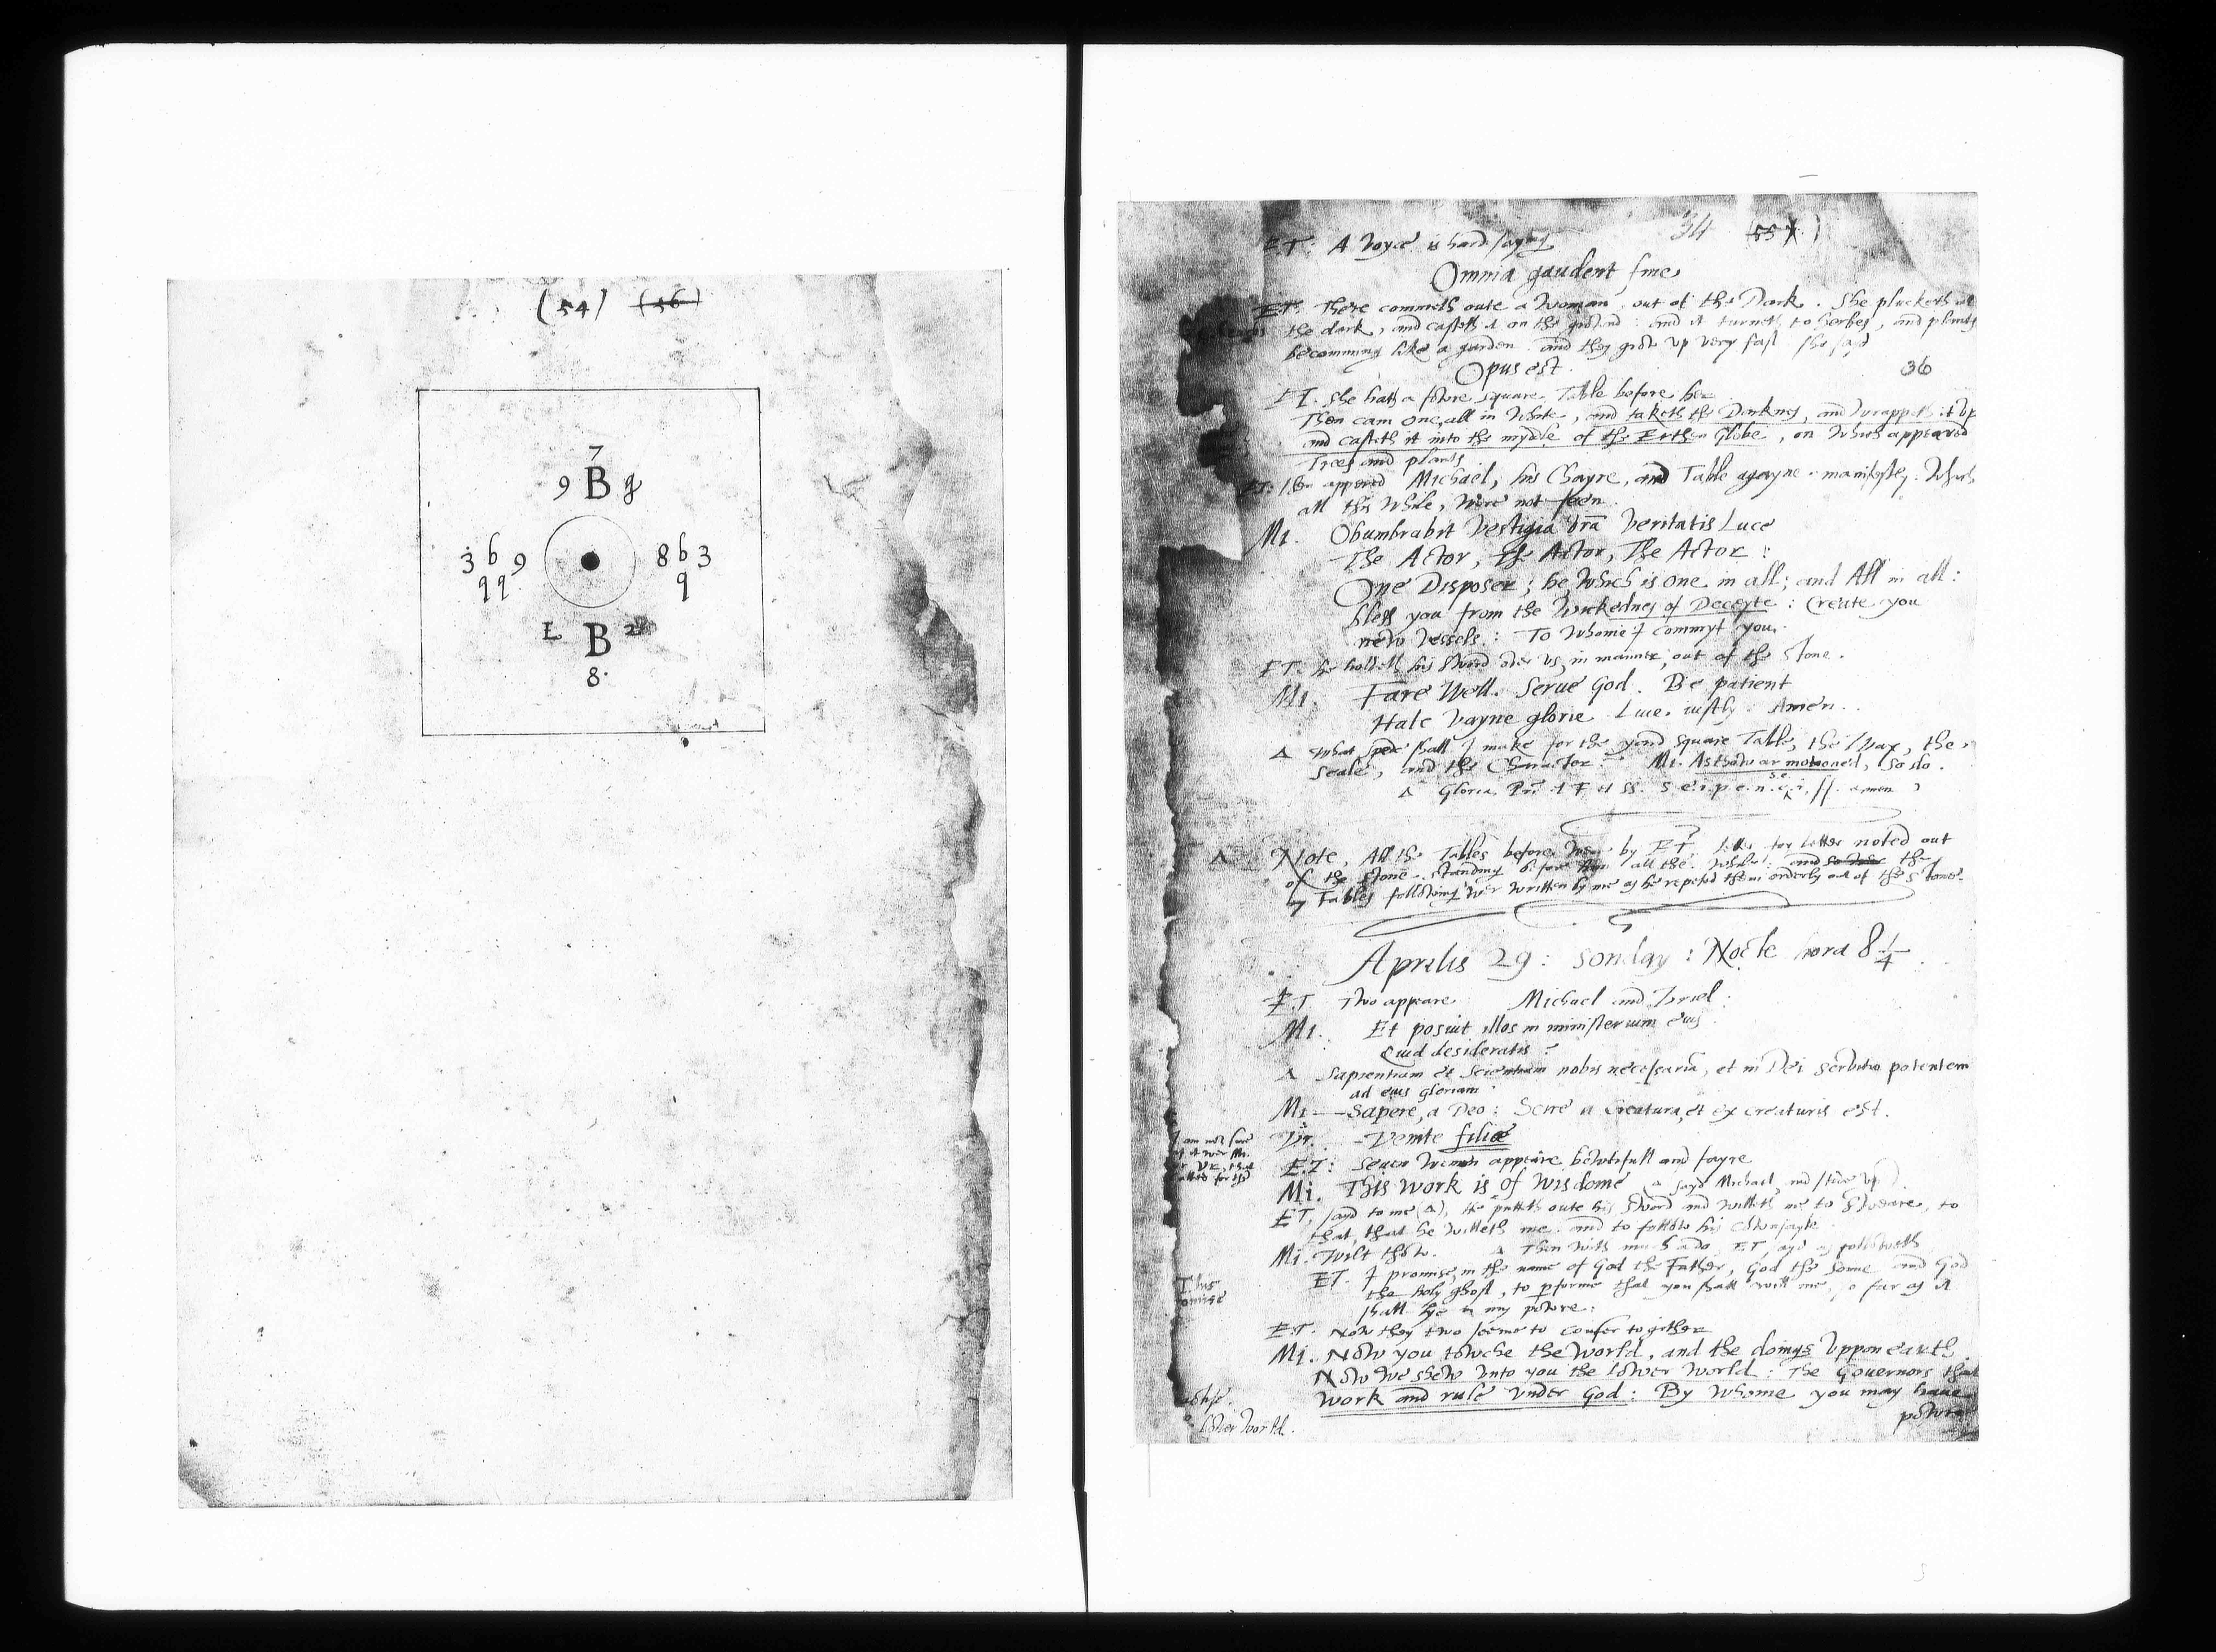 (54) (56)
7
9 B g
3 6 9
9 9
8 6 3
9
B
8.
34 (55)
E.T: A voyce is hard saying
Omnia gaudent fine
ET. There commeth oute a Woman, out of the Dark. She plucketh at
the dark, and casteth it on the grownd: and it turneth to herbes, and plants
becomming like a garden. and they grow up very fast she sayd
Opus est.
36
ET. She hath a fowre square Table before her
Then cam one, all in White, and taketh the Darknes, and wrappeth it up
and casteth it into the myddle of the Erthen Globe, on which appeared
Trees and plants
ET: Then appered Michael, his Chayre, and Table agayne manifestly: Which
all this While, Were not seen.
Mi. Obumbrabit vestigia vra veritatis Luce
The Actor, the Actor, The Actor:
One Disposer; he, which is one in all; and All in all:
bless you from the wickednes of Deceyte: Create you
new vessels: To whome I commyt you.
ET. he holdeth his sword over us, in manner, out of the Stone.
Mi. Fare well. Serve God. Be patient
Hate vayne glorie. Live justly. Amen.
Δ What spede shall I make for the yond square Table, the Wax, the
Seale, and the Character? Mi. As thow ar motioned, So do.
Δ Gloria Pri et F et SS. S.e.i.p.e.n.i. ss. amen
Δ Note, All the Tables before were by ET, letter for letter noted out
of the stone standing before him all the while: and the
7 Tables following wer written by me as he repeted them orderly out of the Stone.
Aprilis 29: Sonday: Nocte hora 8 1/4.
E.T Two appeare Michael and Uriel:
Mi. Et posuit illos in ministerium eius
Quid desideratis?
Δ Sapientiam et Scientiam nobis necessaria, et in Dei Servitio potentem
ad eius gloriam.
Mi - Sapere, a Deo: Scire a Creatura, et ex creaturis est.
I am not sure
yf it wer Mi.
or Ur, that
called for the
Ur. - Venite filiæ
E.T: Seven Wemen appeare bewtifull and fayre
Mi. This work is of wisdome (Δ sayd Michael, and stode up)
ET, sayd to me (Δ), He putteth oute his Sword and willeth me to Sweare, to
that, that he willeth me: and to follow his cownsayle.
Mi. Wilt thow. Δ Then with much ado, ET, sayd as followeth
ET. I promise, in the name of God the Father, God the Sonne and God
the holy ghost, to performe that you shall will me, so far as it
shall lye in my powre:
E.T. Now they two seeme to confer together
Mi. Now you towche the World, and the doings uppon earth.
Now we shew unto you the lower world: The Governors that
work and rule under God: By Whome you may have
lower World.
powre